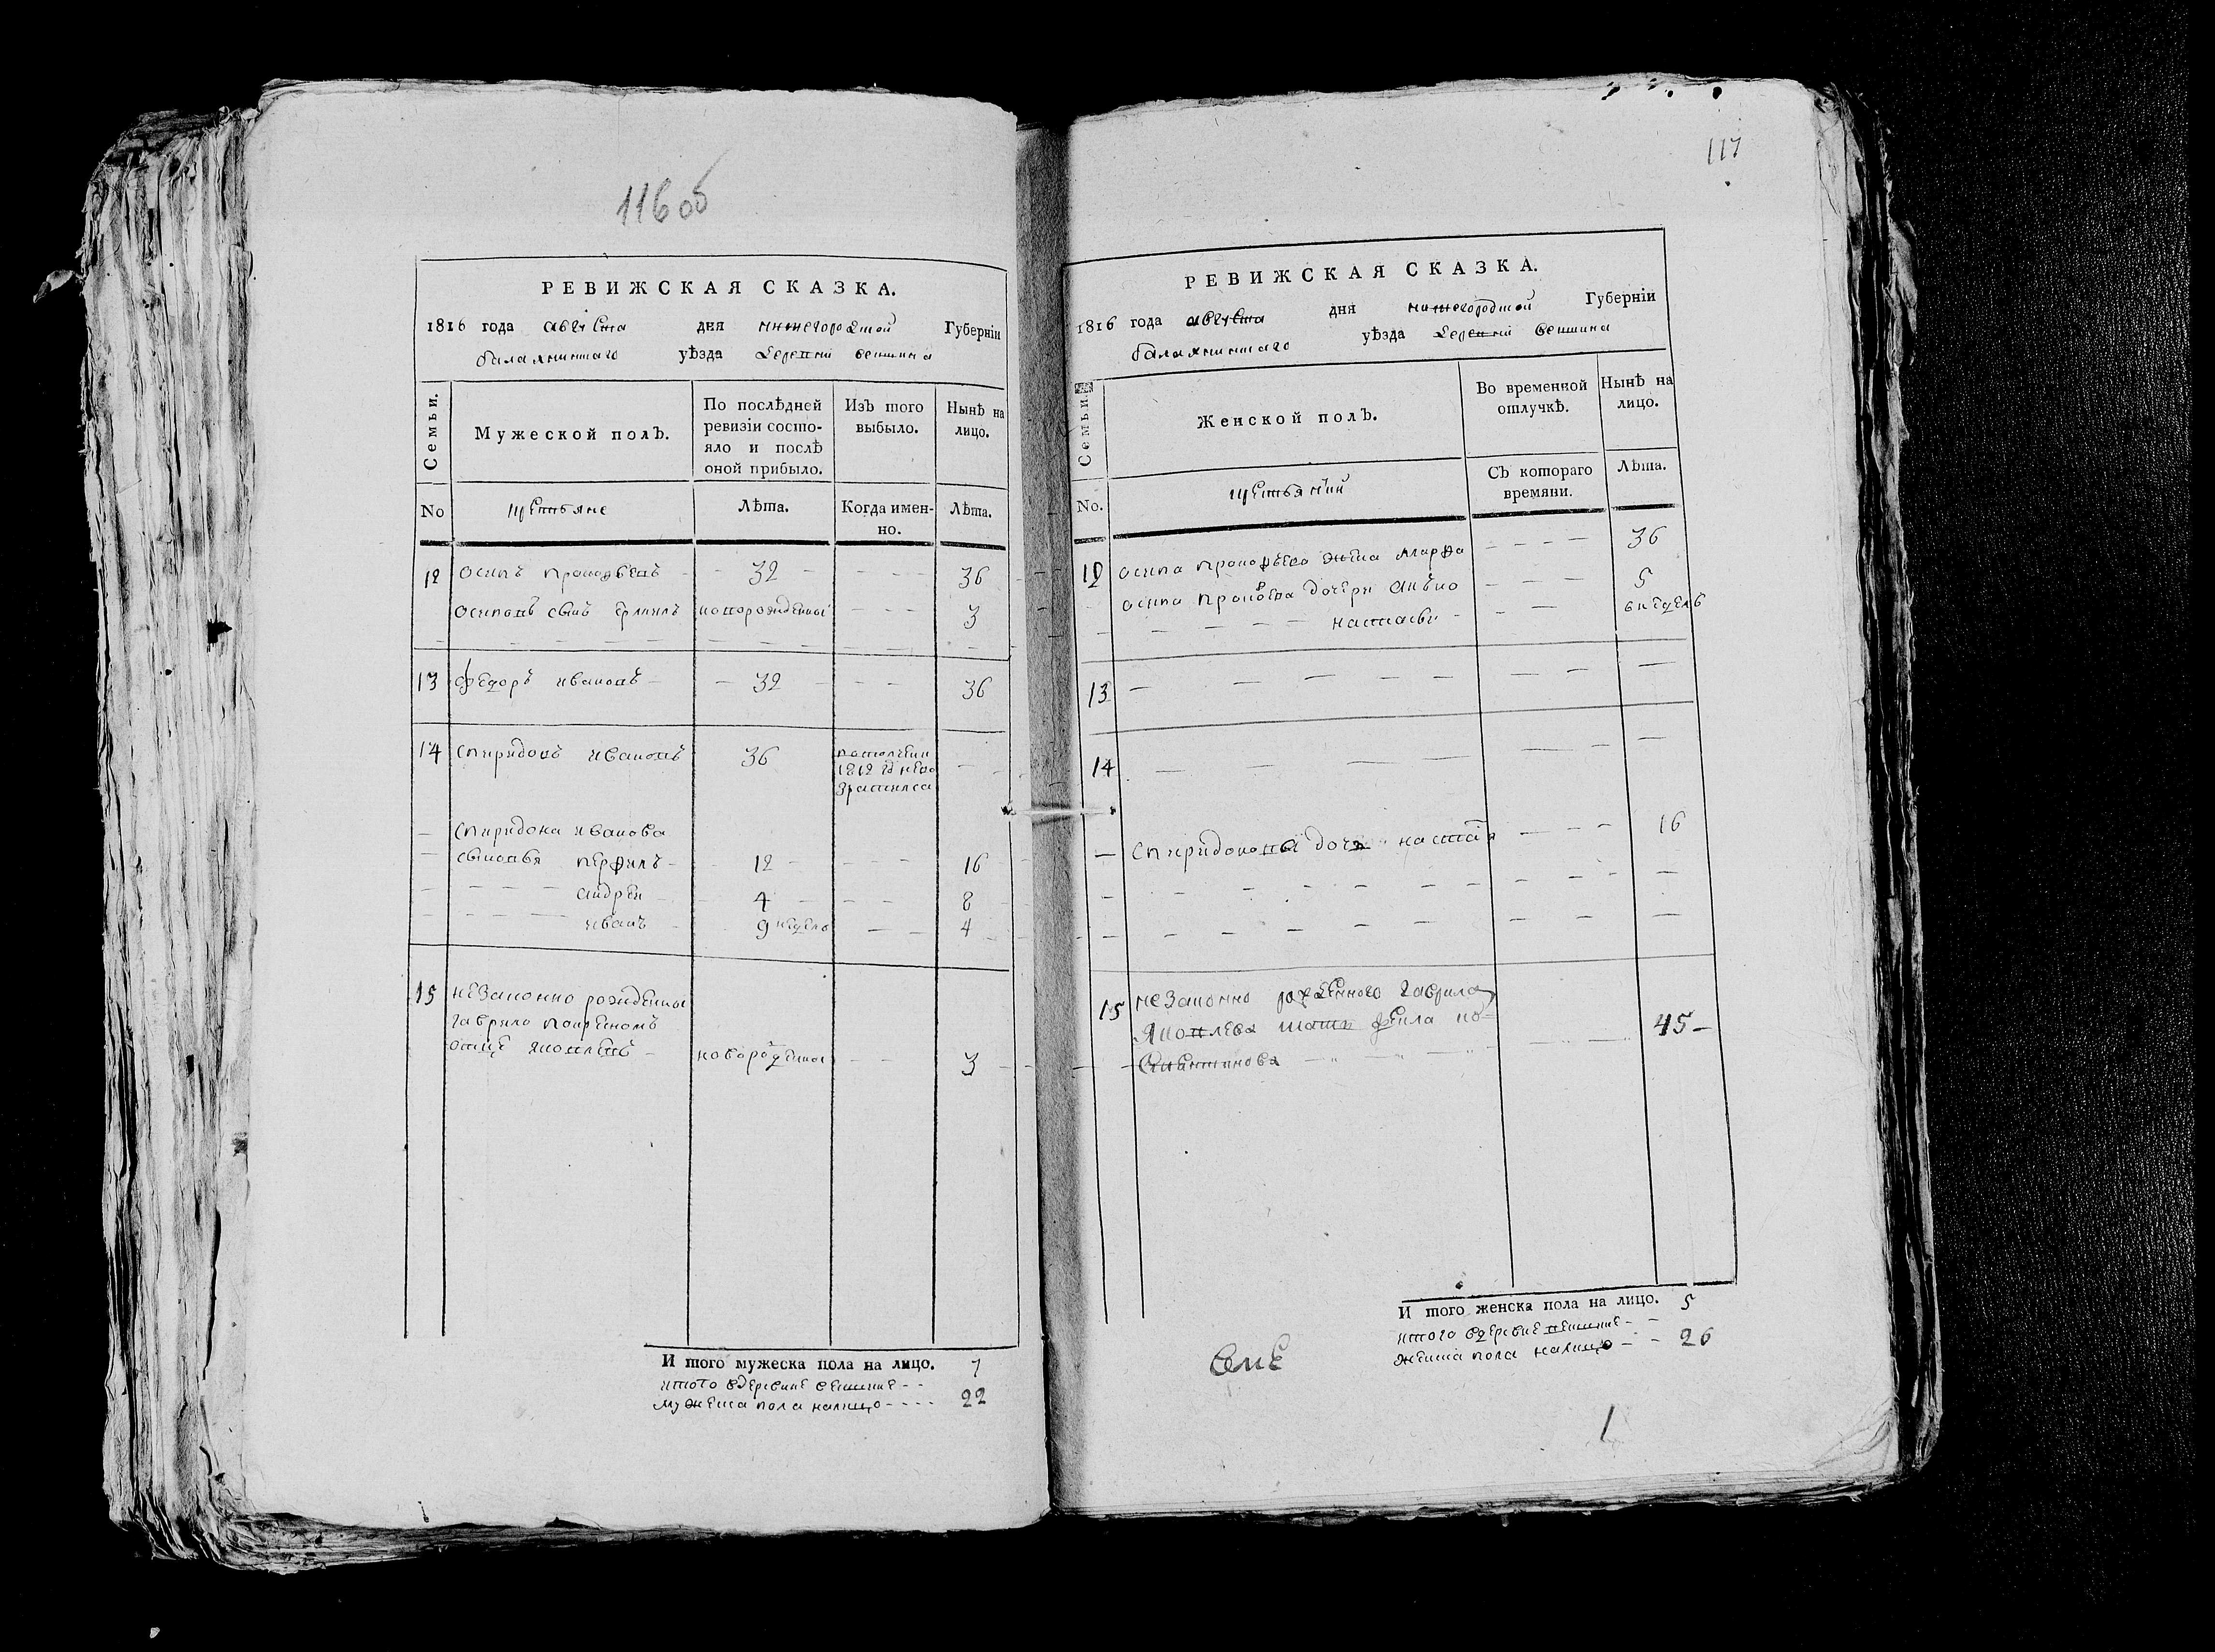 116 об
РЕВИЖСКАЯ СКАЗКА.
1816 года августа дня нижегородской Губерніи
балахнинскаго уѣзда деревни
Семьи. Мужеской полъ. По послѣдней ревизіи состояло и послѣ оной прибыло. Изъ того выбыло. Нынѣ на лицо.
No Лѣта. Когда именно. Лѣта.
12 осипъ прокофьевъ 32 36
осиповъ сынъ ермилъ новорожденный 3
13 федоръ ивановъ 32 36
14 спиридонъ ивановъ 36 1812
спиридона иванова
сыновья перфилъ 12 16
андреи 4 8
иванъ 9 недель 4
15 незаконно рожденны
гаврило
отце яковлевъ новорожденны 3
И того мужеска пола на лицо. 7
итого вдеревне
мужеска пола налицо 22
117
РЕВИЖСКАЯ СКАЗКА.
1816 года августа дня нижегородской Губерніи
балахнинскаго уѣзда деревни
Семьи. Женской полъ. Во временной отлучкѣ. Нынѣ на лицо.
No. Съ котораго времяни. Лѣта.
12 осипа прокофьева жена марфа 36
осипа дочери 5
настасья 6 недель
13
14
спиридонова дочь настасья 16
15 незаконно рожденного гаврила
яковлева мать 45
И того женска пола на лицо. 5
итого вдеревне
женска пола налицо 26